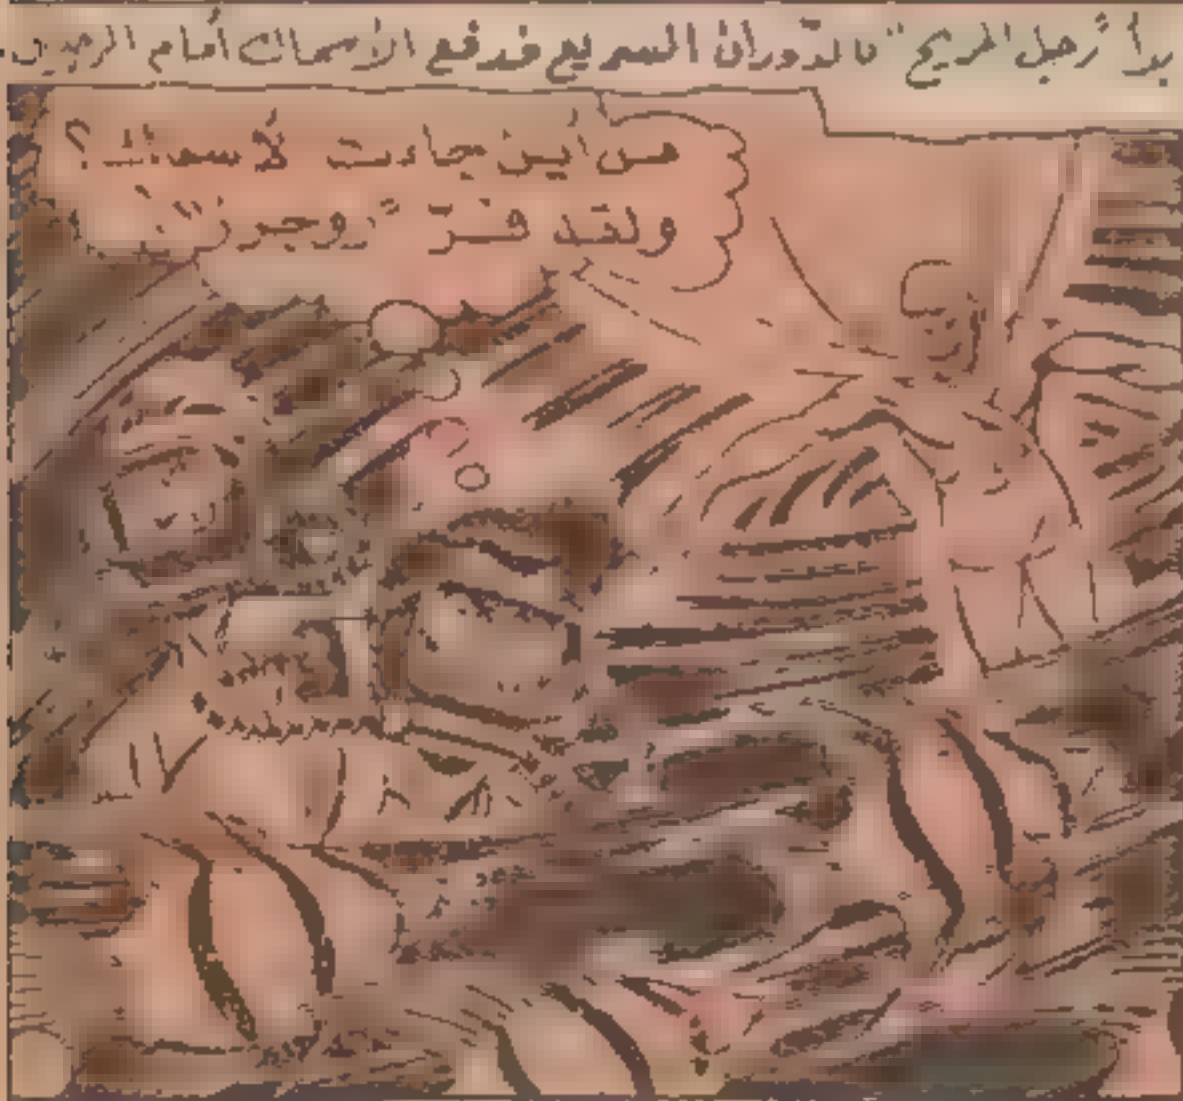 بدأ "رجل المريخ" بالدّوران السريع فدفع الأسماك أمام الرجلين.
من أين جاءت لأسماك؟
ولقد فرّ "روجرز"!